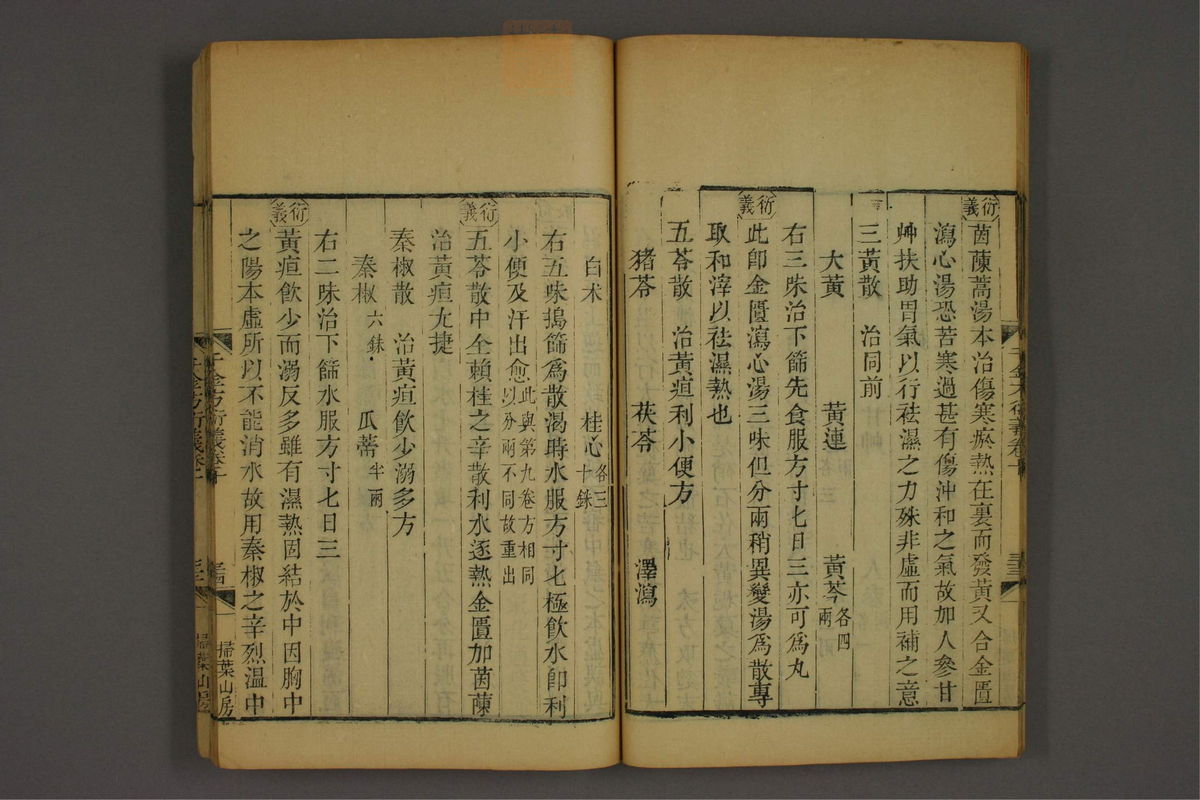 衍義茵蔯蒿湯本治傷寒瘀熱在裏而發黃又合金匱
瀉心湯恐苦寒過甚有傷沖和之氣故加人參甘
艸扶助胃氣以行祛濕之力殊非虛而用補之意
三黃散 治同前
大黃 黃連 黃芩各四兩
右三味治下篩先食服方寸匕日三亦可爲丸
衍義此卽金匱瀉心湯三味但分兩稍異變湯爲散專
取和滓以祛濕熱也
五苓散 治黃疸利小便方
猪苓 茯苓 澤瀉
白术 桂心各三十銖
右五味搗篩爲散渴時水服方寸匕極飮水卽利
小便及汗出愈此與第九卷方相同以分兩不同故重出
衍義五苓散中全賴桂之辛散利水逐熱金匱加茵蔯
治黃疸尤捷
秦椒散 治黃疸飮少溺多方
秦椒六銖 瓜蒂半兩
右二味治下篩水服方寸匕日三
衍義黃疸飮少而溺反多雖有濕熱固結於中因胸中
之陽本虛所以不能消水故用秦椒之辛烈溫中
千金方衍義卷十
掃葉山房